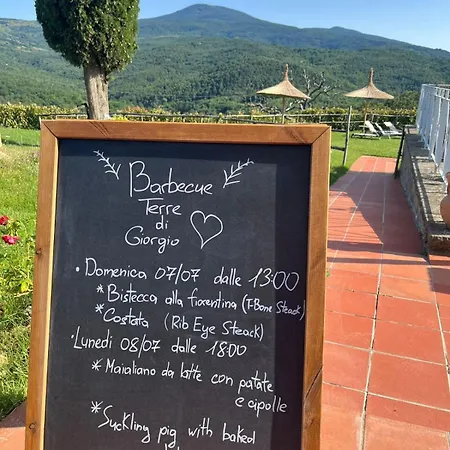 Barbecue
Terre
di
Giorgio
• Domenica 07/07 dalle 13:00
* Bistecca alla fiorentina (T-Bone Steack)
* Costata (Rib Eye Steack)
• Lunedì 08/07 dalle 18:00
* Maialiano da latte con patate
e cipolle
* Suckling pig with baked